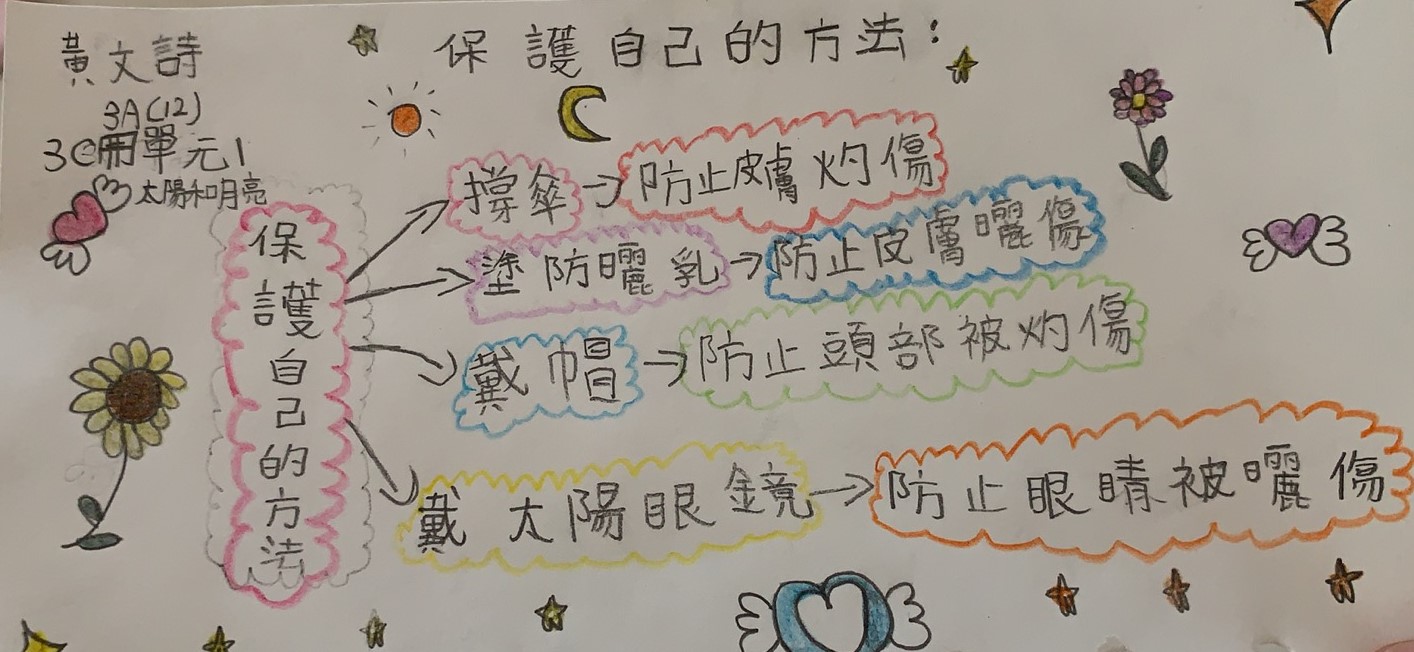 黃文詩
3A(12)
3C冊單元1
太陽和月亮
保護自己的方法：
保護自己的方法
撐傘→防止皮膚灼傷
塗防曬乳→防止皮膚曬傷
戴帽→防止頭部被灼傷
戴太陽眼鏡→防止眼睛被曬傷